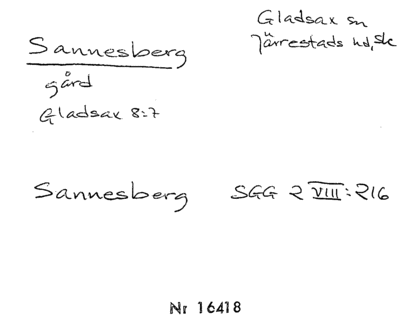 Sannesberg
gård
Gladsax 8:7
Gladsax sn
Järrestads hd, Sk
Sannesberg SGG 2 VIII:216
Nr 16418